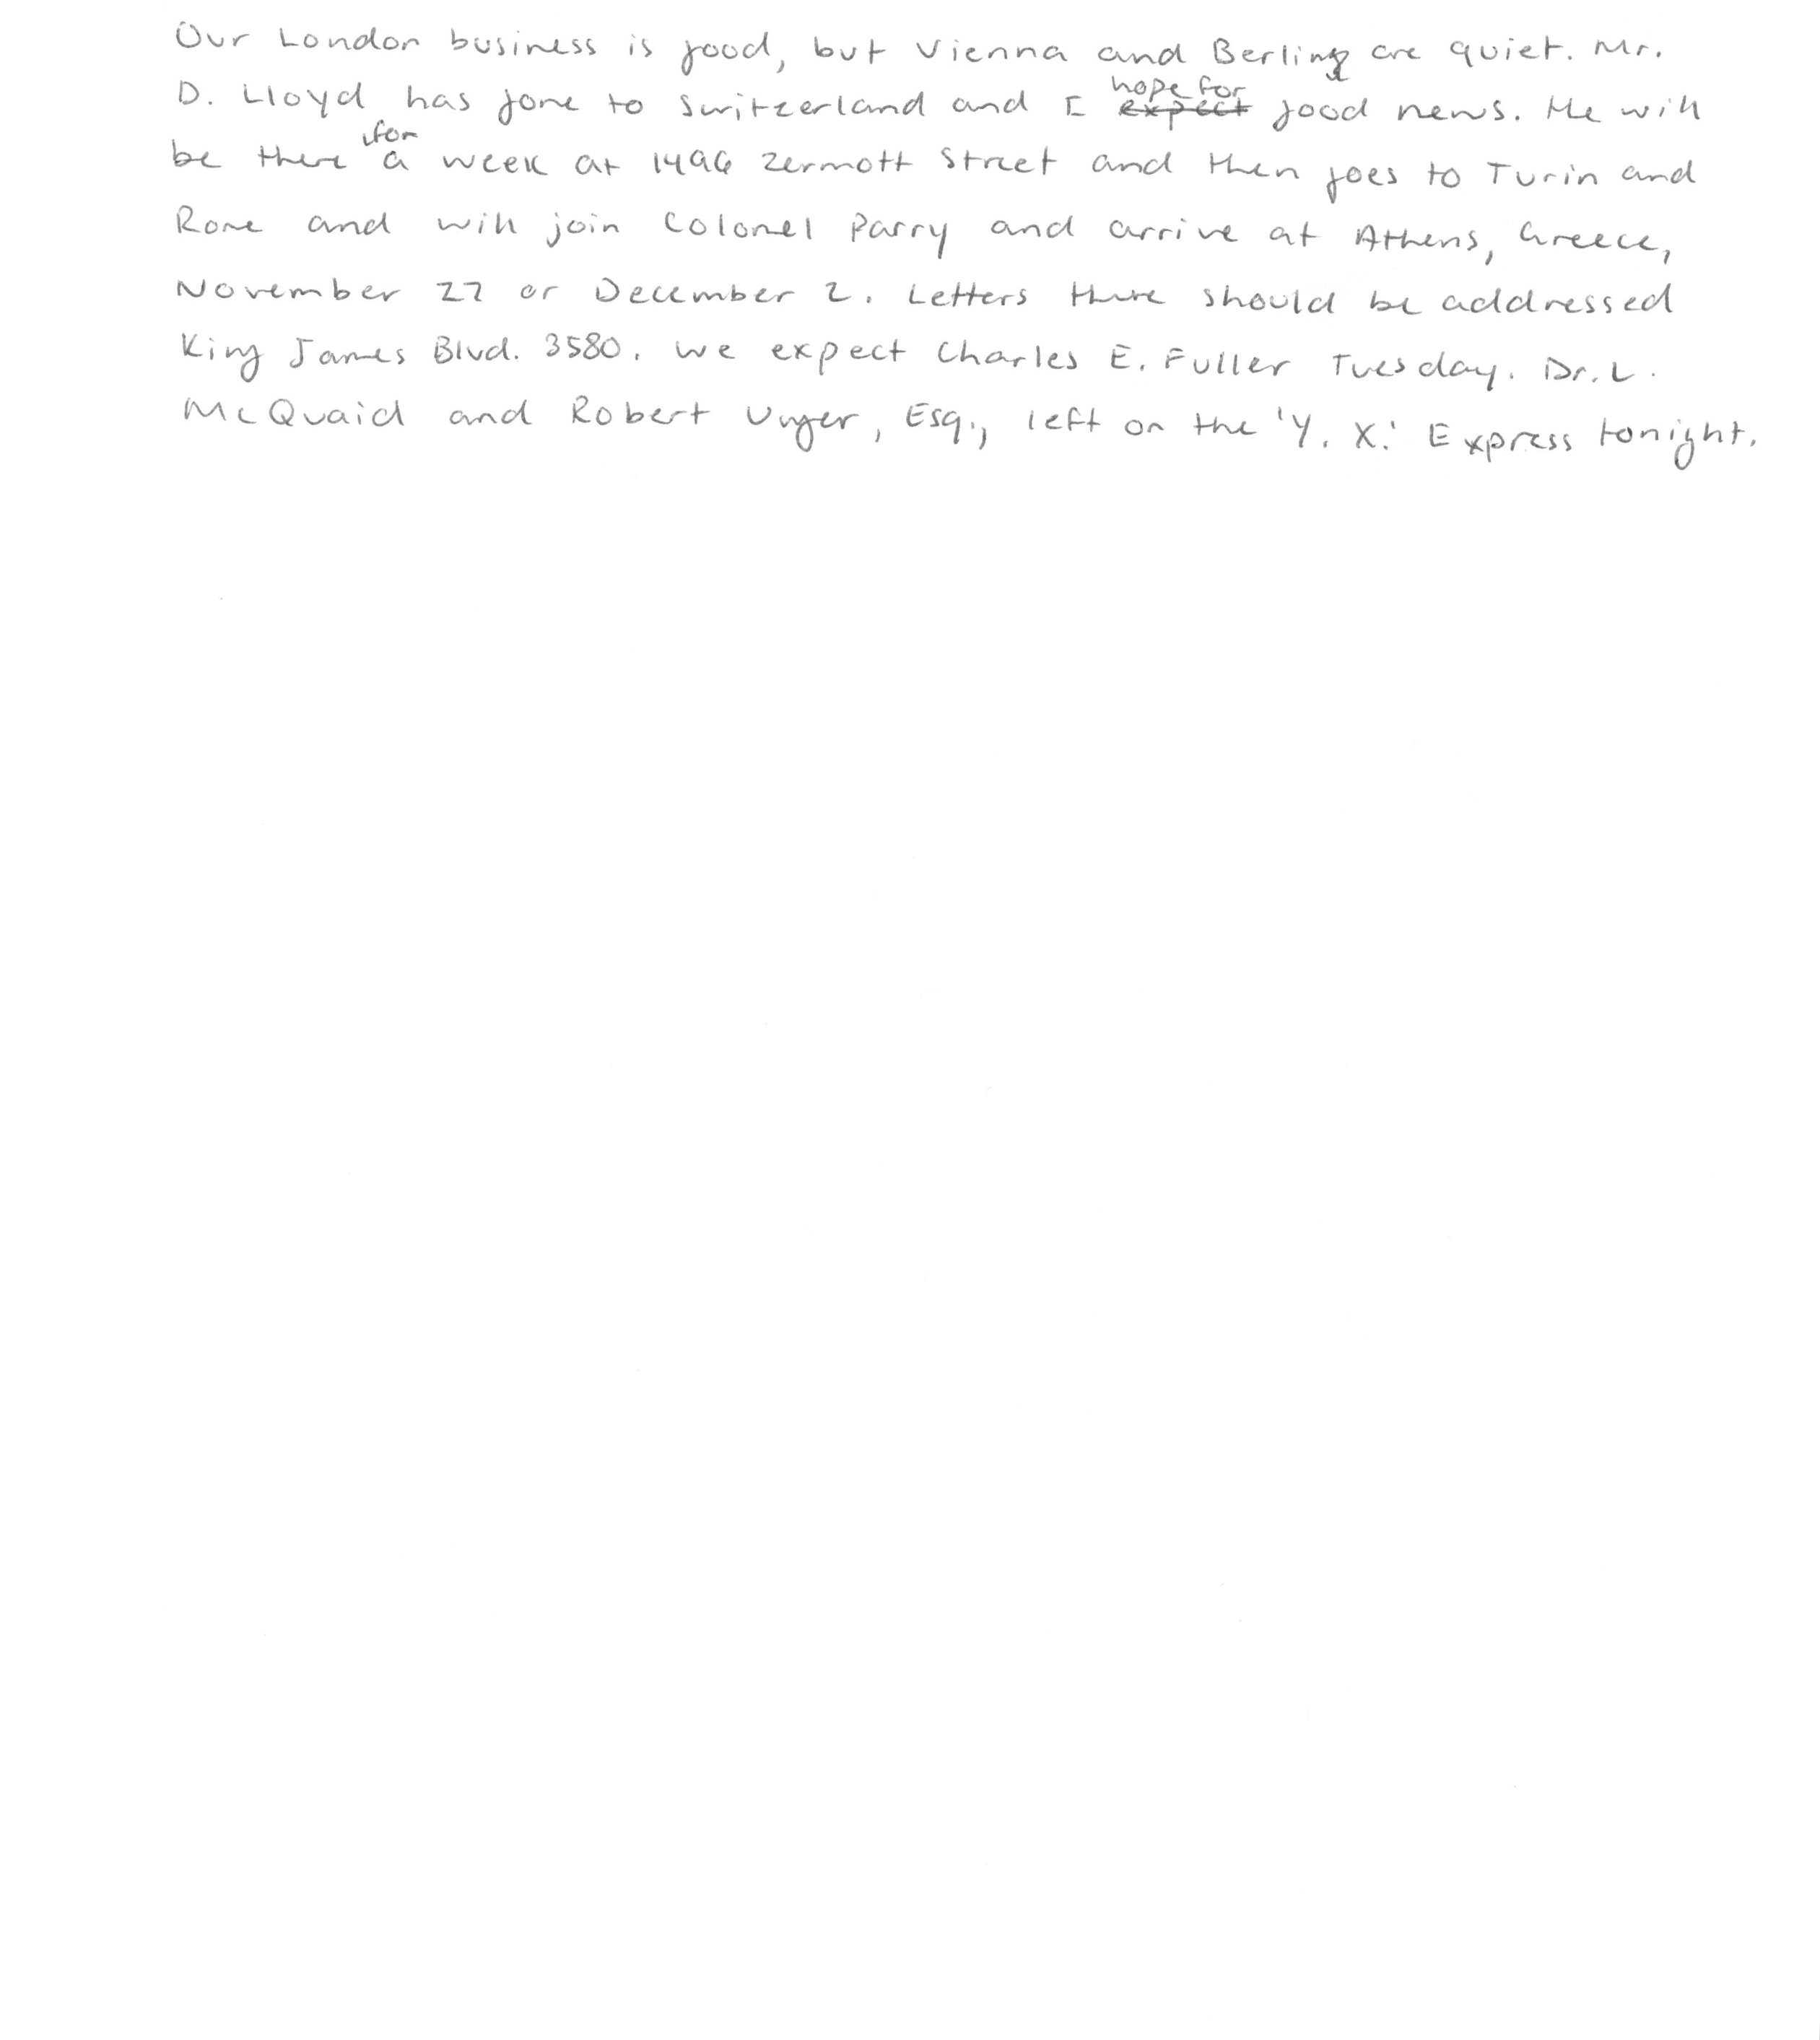 Our London business is good, but Vienna and Berlin are quiet. Mr.
D. Lloyd has gone to Switzerland and I hope for good news. He will
be there for a week at 1496 Zermott Street and then goes to Turin and
Rome and will join Colonel Parry and arrive at Athens, Greece,
November 27 or December 2. Letters there should be addressed
King James Blvd. 3580. We expect Charles E. Fuller Tuesday. Dr. L.
McQuaid and Robert Unger, Esq., left on the 'Y. X.' Express tonight.